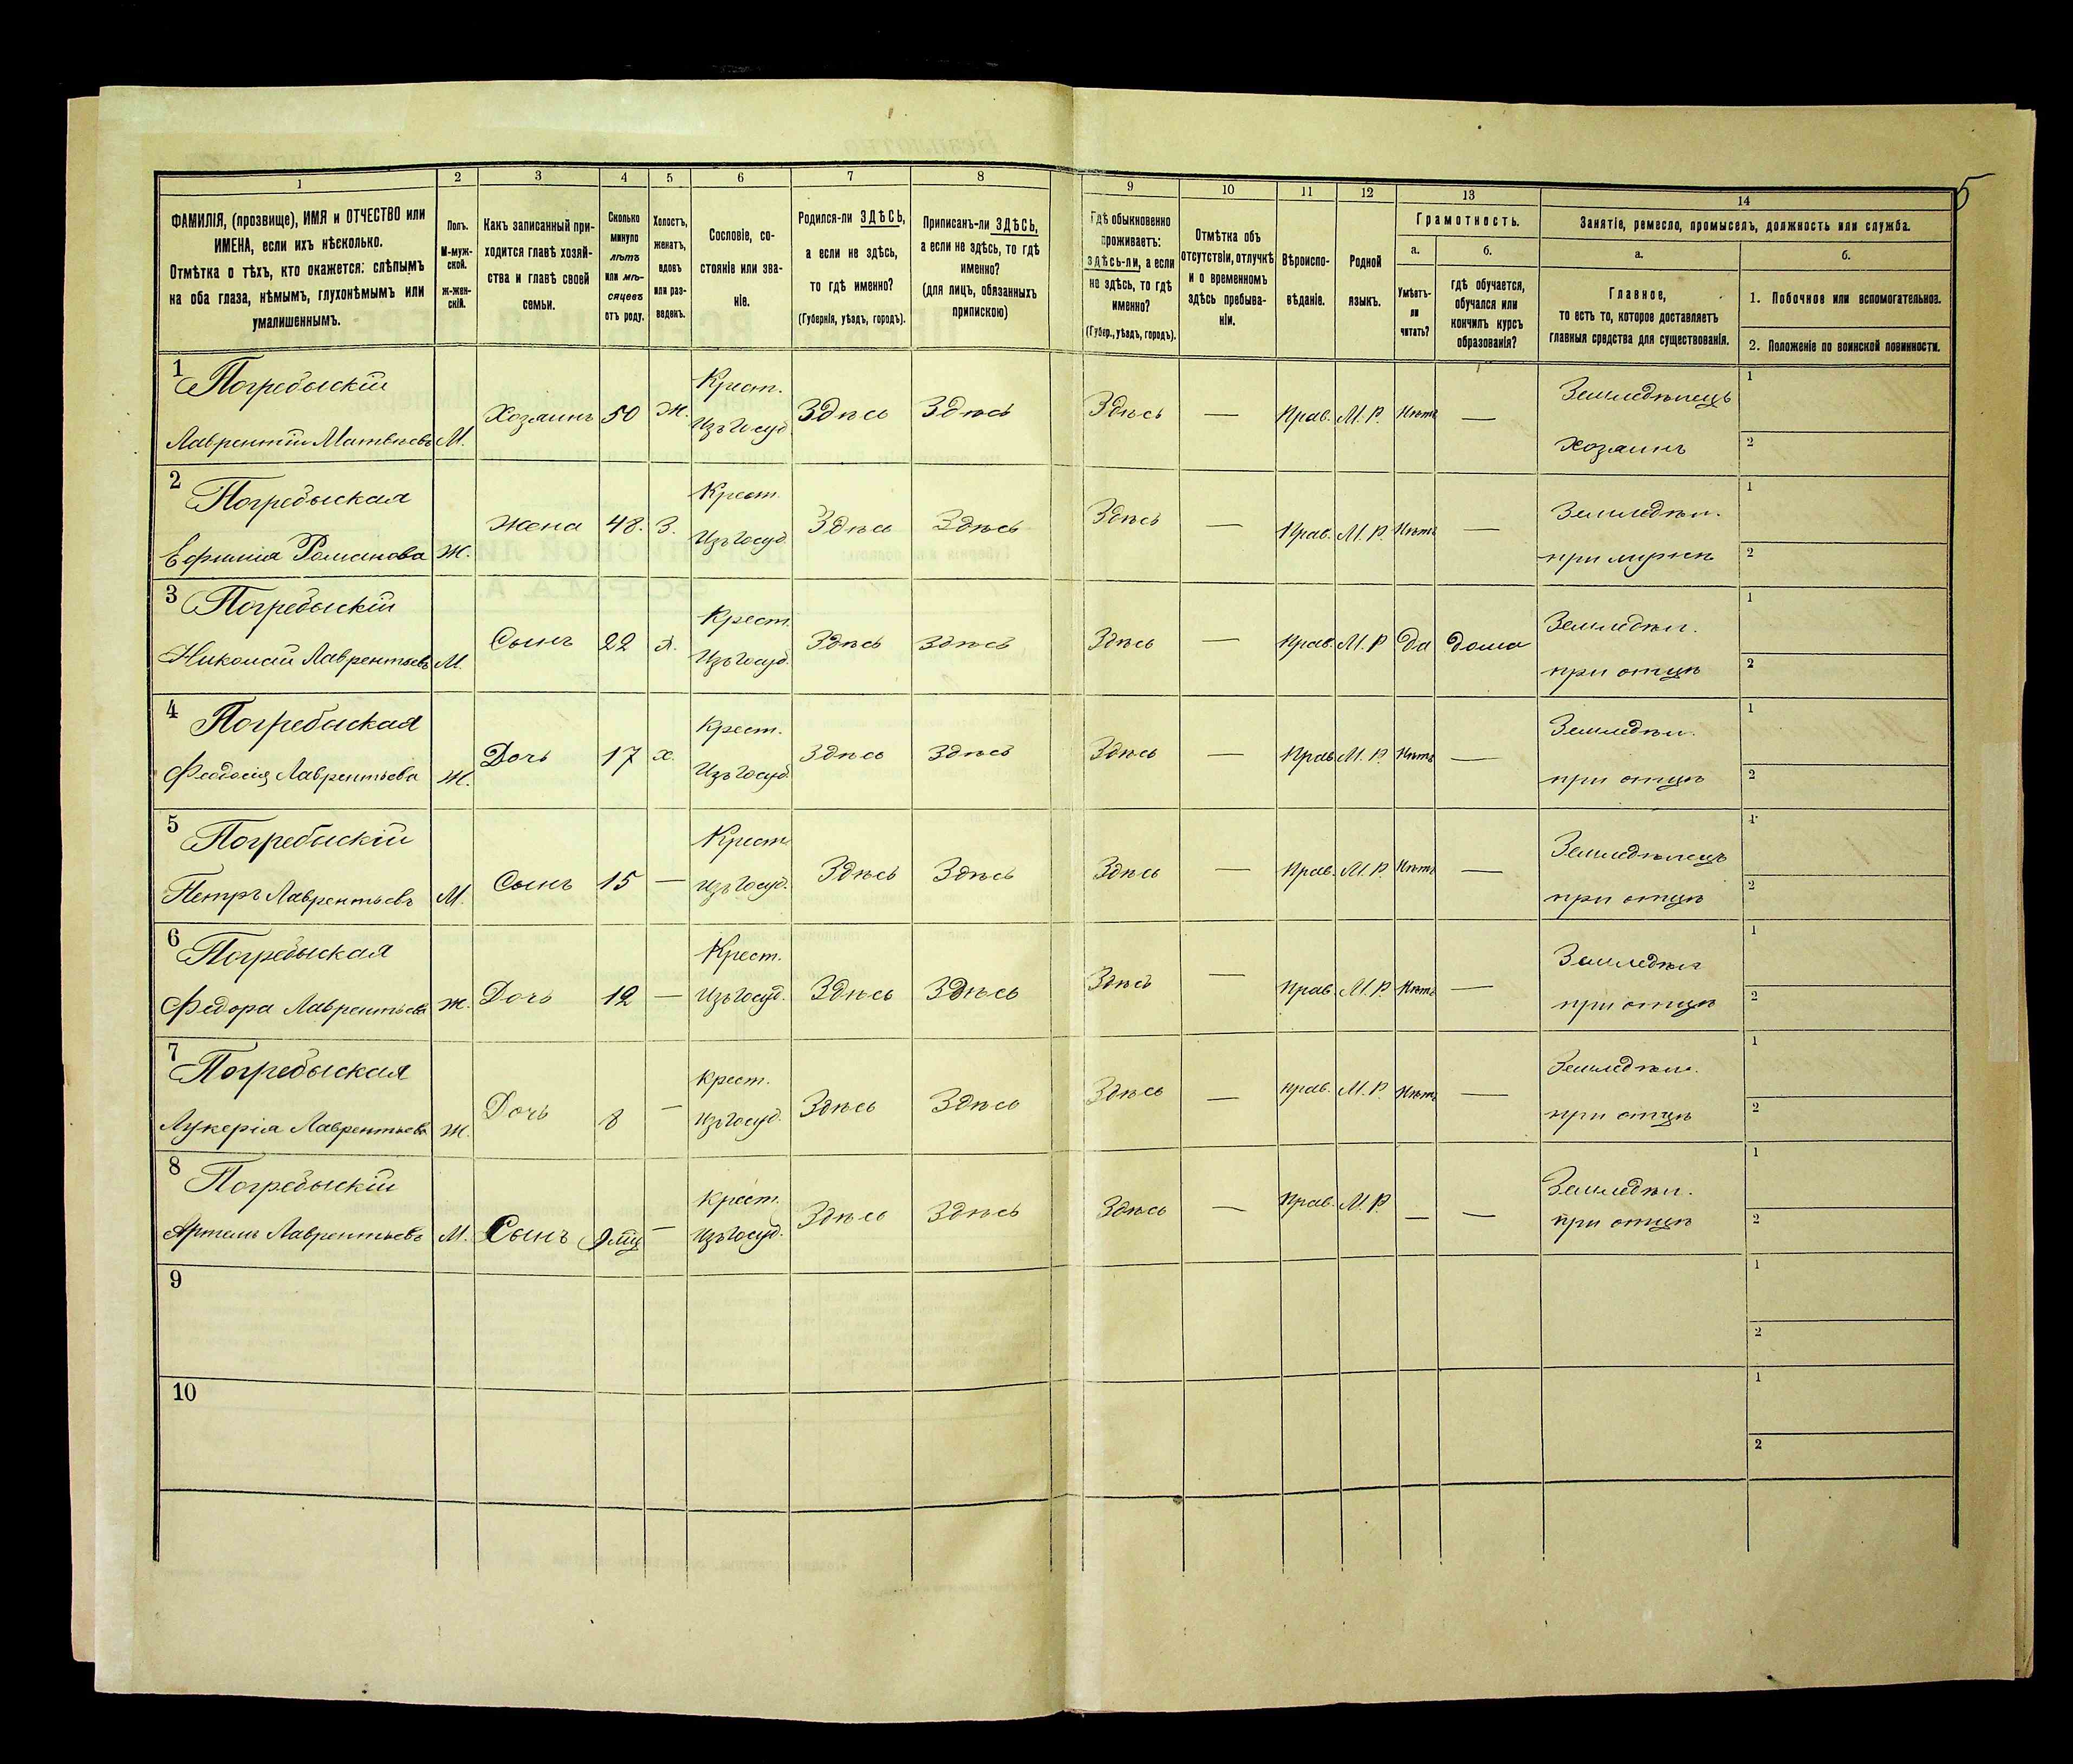 5
1
2
3
4
5
6
7
8
9
10
11
12
13
14
ФАМИЛІЯ, (прозвище), ИМЯ и ОТЧЕСТВО или
ИМЕНА, если ихъ нѣсколько.
Отмѣтка о тѣхъ, кто окажется: слѣпымъ
на оба глаза, нѣмымъ, глухонѣмымъ или
умалишеннымъ.
Полъ.
М-муж-
ской.
Ж-жен-
скій.
Какъ записанный при-
ходится главѣ хозяй-
ства и главѣ своей
семьи.
Сколько
минуло
лѣтъ
или мѣ-
сяцевъ
отъ роду.
Холостъ,
женатъ,
вдовъ
или раз-
веденъ.
Сословіе, со-
стояніе или зва-
ніе.
Родился-ли ЗДѢСЬ,
а если не здѣсь,
то гдѣ именно?
(Губернія, уѣздъ, городъ).
Приписанъ-ли ЗДѢСЬ,
а если не здѣсь, то гдѣ
именно?
(для лицъ, обязанныхъ
припискою)
Гдѣ обыкновенно
проживаетъ:
здѣсь-ли, а если
не здѣсь, то гдѣ
именно?
(Губер., уѣздъ, городъ).
Отмѣтка объ
отсутствіи, отлучкѣ
и о временномъ
здѣсь пребыва-
ніи.
Вѣроиспо-
вѣданіе.
Родной
языкъ.
Грамотность.
а.
Умѣетъ-
ли
читать?
б.
гдѣ обучается,
обучался или
кончилъ курсъ
образованія?
Занятіе, ремесло, промыселъ, должность или служба.
а.
Главное,
то есть то, которое доставляетъ
главныя средства для существованія.
б.
1. Побочное или вспомогательное.
2. Положеніе по воинской повинности.
1 Погребыскій Крест. Земледѣлецъ 1
Лаврентій Матвѣевъ М. Хозяинъ 50 Ж. Изъ Госуд. Здѣсь Здѣсь Здѣсь — Прав. М. Р. Нѣтъ — Хозяинъ 2
2 Погребыская Крест. Земледѣл. 1
Ефимія Романова Ж. Жена 48. З. Изъ Госуд. Здѣсь Здѣсь Здѣсь — Прав. М. Р. Нѣтъ — при мужѣ 2
3 Погребыскій Крест. Земледѣл. 1
Николай Лаврентьевъ М. Сынъ 22 х. Изъ Госуд. Здѣсь Здѣсь Здѣсь — Прав. М. Р Да Дома при отцѣ 2
4 Погребыская Крест. Земледѣл. 1
Феодосія Лаврентьева Ж. Дочь 17 х. Изъ Госуд. Здѣсь Здѣсь Здѣсь — Прав. М. Р. Нѣтъ — при отцѣ 2
5 Погребыскій Крест. Земледѣлецъ 1
Петръ Лаврентьевъ М. Сынъ 15 — Изъ Госуд. Здѣсь Здѣсь Здѣсь — Прав. М. Р. Нѣтъ — при отцѣ 2
6 Погребыская Крест. Земледѣл 1
Федора Лаврентьева Ж. Дочь 12 — Изъ Госуд. Здѣсь Здѣсь Здѣсь — Прав. М. Р. Нѣтъ — при отцѣ 2
7 Погребыская Крест. Земледѣл. 1
Лукерія Лаврентьева Ж. Дочь 8 — Изъ Госуд. Здѣсь Здѣсь Здѣсь — Прав. М. Р. Нѣтъ — при отцѣ 2
8 Погребыскій Крест. Земледѣл. 1
Артемъ Лаврентьевъ М. Сынъ 9 мц — Изъ Госуд. Здѣсь Здѣсь Здѣсь — Прав. М. Р. — — при отцѣ 2
9 1
2
10 1
2